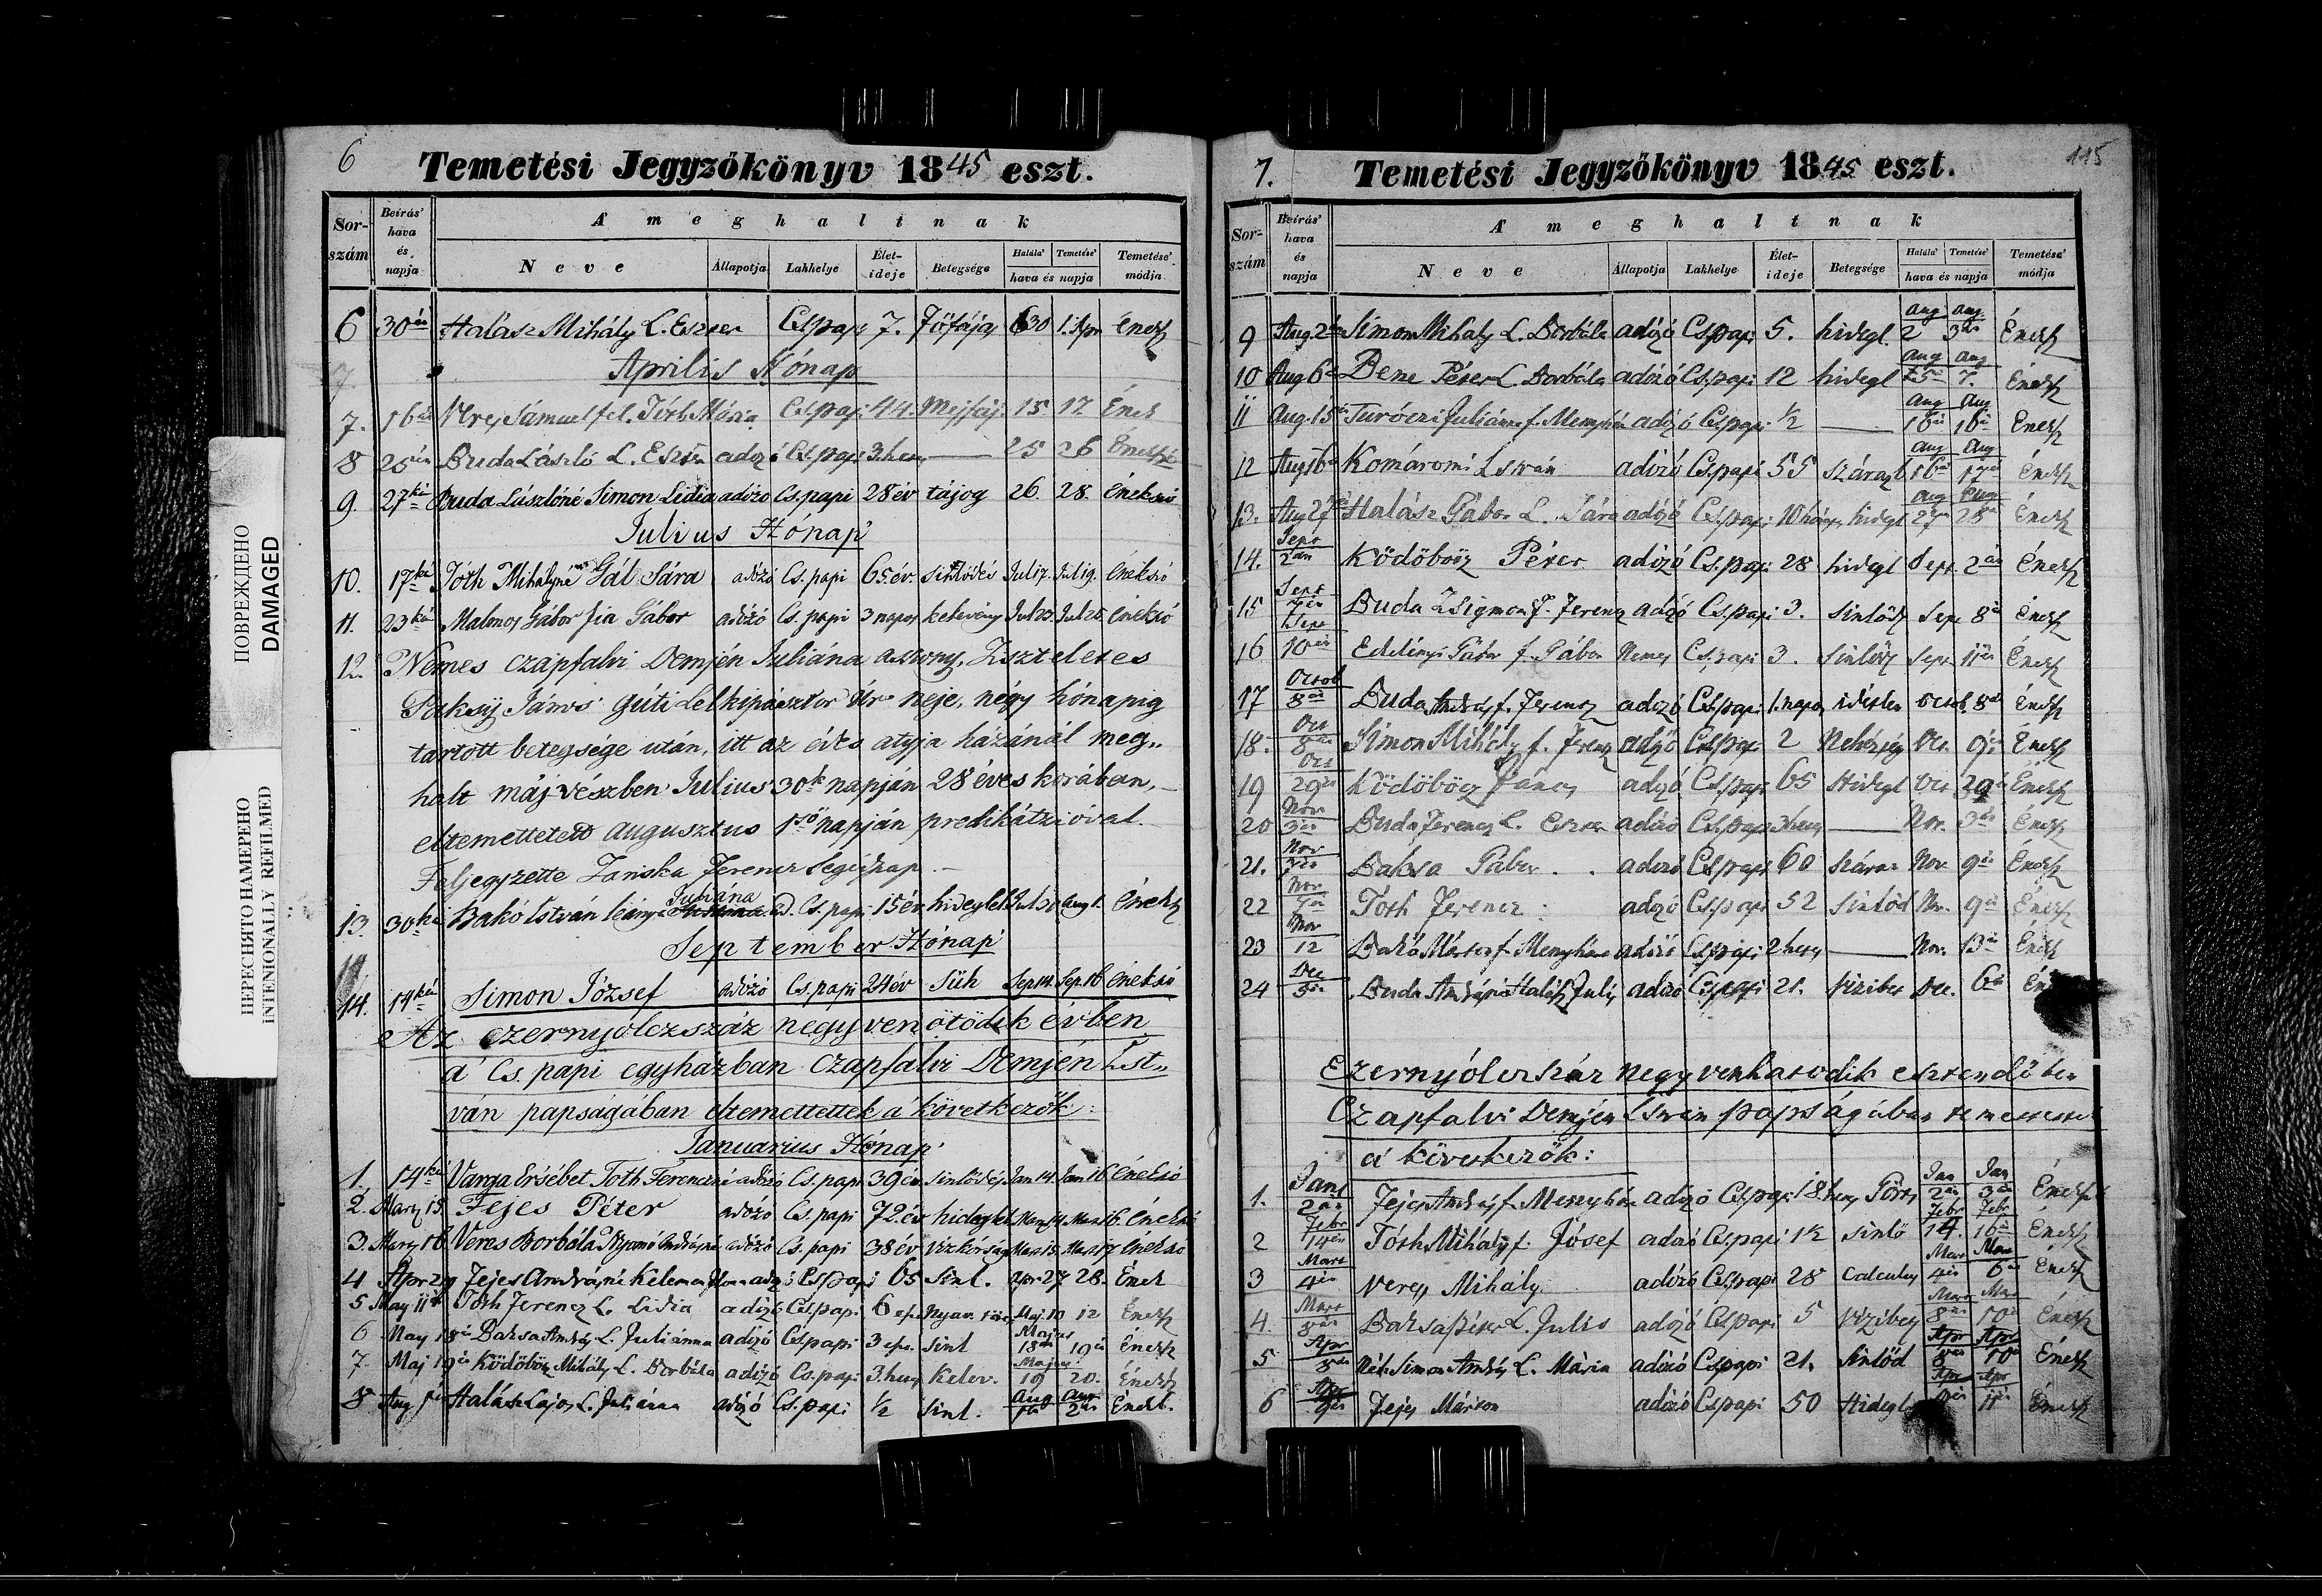 ПОВРЕЖДЕНО
DAMAGED
ПЕРЕСНЯТО НАМЕРЕНО
INTENIONALLY REFILMED
6
Temetési Jegyzőkönyv 1845 eszt.
Sor-szám Beírás' hava és napja A' meghaltnak
Neve Állapotja Lakhelye Élet-ideje Betegsége Halála' Temetése' hava és napja Temetése' módja
6 30án Halász Mihály L. Eszter Cs.papi 7. Főfájás 30 1. Apr Éneksz
Aprilis Hónap
7. 16án Veres Sámuel fel. Tóth Mária Cs papi 44. Mejfáj. 15 17 Ének
8 25én Buda László L. Eszter adozó Cs. papi 3. hetes — 25 26 Éneksz
9. 27ká Buda Lászlóné Simon Lidia adózó Cs. papi 28 év tájog 26. 28. Éneksző
Julius Hónap
10. 17ká Tóth Mihályné Gál Sára adózó Cs. papi 65. év sinlődés Jul 17. Jul 19. Éneksző
11. 23ká Malomos Gábor fia Gábor adózó Cs. papi 3 napos kelevény Jul 23. Jul 25. Éneksző
12. Nemes czapfalvi Demjén Juliána asszony, Tiszteletes
Paksy János gúti Lelkipásztor Úr neje, négy hónapig
tartott betegsége után, itt az édes atyja házánál meg,,
halt májvészben Julius 30k napján 28 éves korában, –
eltemettetett augusztus 1ső napján predikátzióval.
Feljegyzette Ferencz segédpap. –
13. 30ká Bakó István leánya Juliána ad. Cs. papi 15 év hideglel. Jul 30 Aug 1. Éneksz
September Hónap
14. 14ká Simon József adózó Cs. papi 24 év Süh Sep 14. Sep. 16 Éneksző
Az ezernyolczszáz negyvenötödik évben
a' Cs. papi egyházban czapfalvi Demjén Ist,,
ván papságában eltemettettek a' következők:
Januarius Hónap
1. 14ká Varga Ersébet Toth Ferenczné adózó Cs. papi 39 év sinlődés Jan 14. Jan 16 Éneksző
2. Marz 15. Fejes Péter adózó Cs. papi 72. év hideglel. Marz 14. Marz 16. Éneksző
3. Marz 16 Veres Borbála Andrásné adózó Cs. papi 38 év vízkórság Marz 15. Marz 17 Éneksző
4 Apr 29 Fejes Andrásné Kelemen adozó Cs papi 65 Sinl. Apr 27 28. Ének
5 May 11én Tóth Ferencz L. Lidia adózó Cs. papi 6 Maj. 10 12 Éneksz
6 May 18án Baksa András L. Juliánna adózó Cs papi 3 sinl Majus 18án 19én Éneksz
7. Maj 19én Ködöböcz Mihály L. Borbála adózó Cs. papi 3. hetes Kelev. Majus 19 20. Éneksz
8 Aug 1én Halász Lajos L. Juliánna adózó Cs. papi ½ Sinl. Aug 1én Aug 2án Éneksz.
7.
Temetési Jegyzőkönyv 1845 eszt.
115
Sor-szám Beírás' hava és napja A' meghaltnak
Neve Állapotja Lakhelye Élet-ideje Betegsége Halála' Temetése' hava és napja Temetése' módja
9 Aug. 2án Simon Mihály L. Borbála adózó Cs.papi 5. hidegl. Aug 2 Aug 3án Éneksz
10 Aug 6án Bene Péter L. Borbála adózó Cs.papi 12 hidegl Aug 5én Aug 7. Éneksz
11 Aug. 15én Juliánna f. Menyhért adózó Cs papi ½ — Aug 16án Aug 16án Éneksz
12 Aug 16án Komáromi István adózó Cs.papi 55 száraz b Aug 16án Aug 17én Éneksz
13. Aug 27én Halász Gábor L. Sára adózó Cs.papi 10 hónapos hidegl Aug 27én Aug 28án Éneksz
14. Sept 2án Ködöböcz Péter adózó Cs.papi 28 hidegl Sept. 2án Éneksz
15 Sept 7én Buda Zsigmond F. Ferencz adózó Cs.papi 3. Sinlődz Sept 8án Éneksz
16 Sept 10én Edelényi Gábor f. Gábor Nemes Cs.papi 3. Sinlődz Sept 11én Éneksz
17 Octob 8án Buda András f. Ferencz adózó Cs.papi 1. napos idétlen Octob. 8án Éneksz
18. Oct 8án Simon Mihály f. Ferencz adózó Cs.papi 2 Nehézség Oct. 9én Éneksz
19 Oct 29én Ködöböcz János adózó Cs.papi 65 Hidegl Oct 29én Éneksz
20 Nov 3án Buda Ferencz L. Eszter adózó Cs.papi 3hetes — Nov. 3án Éneksz
21. Nov 7én Baksa Gábor . . adózó Cs.papi 60 száraz Nov 9én Éneksz
22 Nov Tóth Ferencz : adózó Cs.papi 52 Sinlőd Nov. 9én Éneksz
23 Nov 12 Bakó Márton f. Menyhért adózó Cs.papi 2hetes — Nov. 13án Éneksz
24 Dec 5én Buda Andrásné Halász Juli adózó Cs papi 21. Vízibet Dec. 6án
Ezernyólczszáz negyvenhatodik esztendőben
Czapfalvi Demjén István papságában
a' következők:
1. Jan 2án Fejes András f. Menyhért adózó Cs.papi 18. hetes Görcs Jan 2án Jan 3án Éneksz
2 Febr 14én Tóth Mihály f. József adózó Cs.papi 1½ sinlő Febr 14. Febr 16án Éneksz
3 Mart 4én Veres Mihály adózó Cs.papi 28 Calculus Mar 4én Mar 6án Éneksz
4. Mart 8án Baksa Péter L. Julis adózó Cs papi 5 Vízibeg Mart 8án Mar 10én Éneksz
5 Apr 8án Néh. Simon András L. Mária adózó Cs.papi 21. Sinlőd Apr 8án Apr 10én Éneksz
6 Apr 9én Fejes Márton adózó Cs papi 50 Hidegl Apr 9én Apr 11 Éneksz